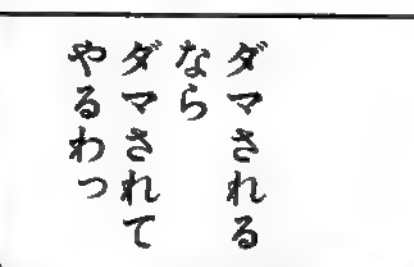 ダマされる
なら
ダマされて
やるわっ